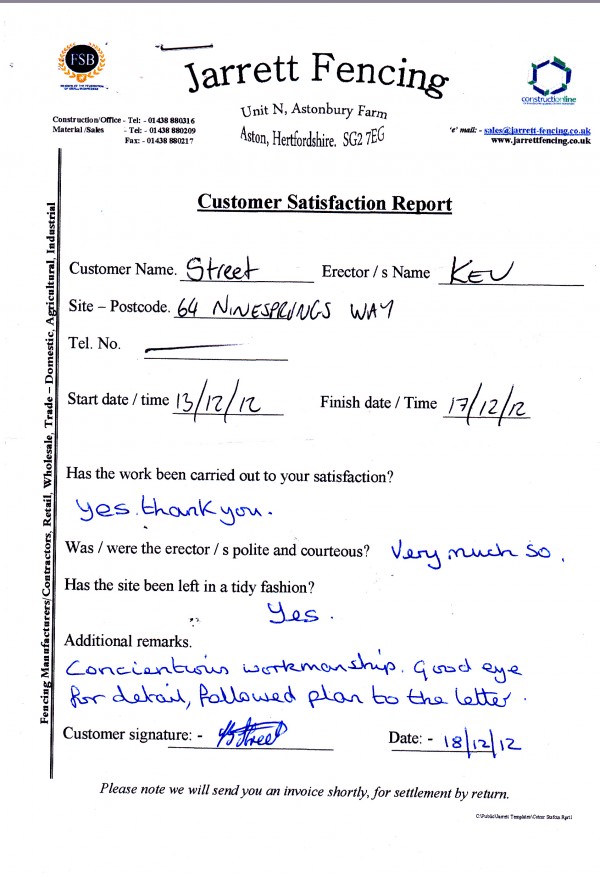 FSB
Jarrett Fencing
Unit N, Astonbury Farm
Aston, Hertfordshire. SG2 7EG
constructionline
Construction/Office - Tel: - 01438 880316
Material /Sales - Tel: - 01438 880209
Fax: - 01438 880217
'e' mail: - sales@jarrett-fencing.co.uk
www.jarrettfencing.co.uk
Fencing Manufacturers/Contractors, Retail, Wholesale, Trade – Domestic, Agricultural, Industrial
Customer Satisfaction Report
Customer Name. Street Erector / s Name KEV
Site – Postcode. 64 NINESPRINGS WAY
Tel. No.
Start date / time 13/12/12 Finish date / Time 17/12/12
Has the work been carried out to your satisfaction?
Yes. thank you.
Was / were the erector / s polite and courteous? Very much so.
Has the site been left in a tidy fashion?
Yes.
Additional remarks.
Concientious workmanship. Good eye
for detail, followed plan to the letter.
Customer signature: - Street
Date: - 18/12/12
Please note we will send you an invoice shortly, for settlement by return.